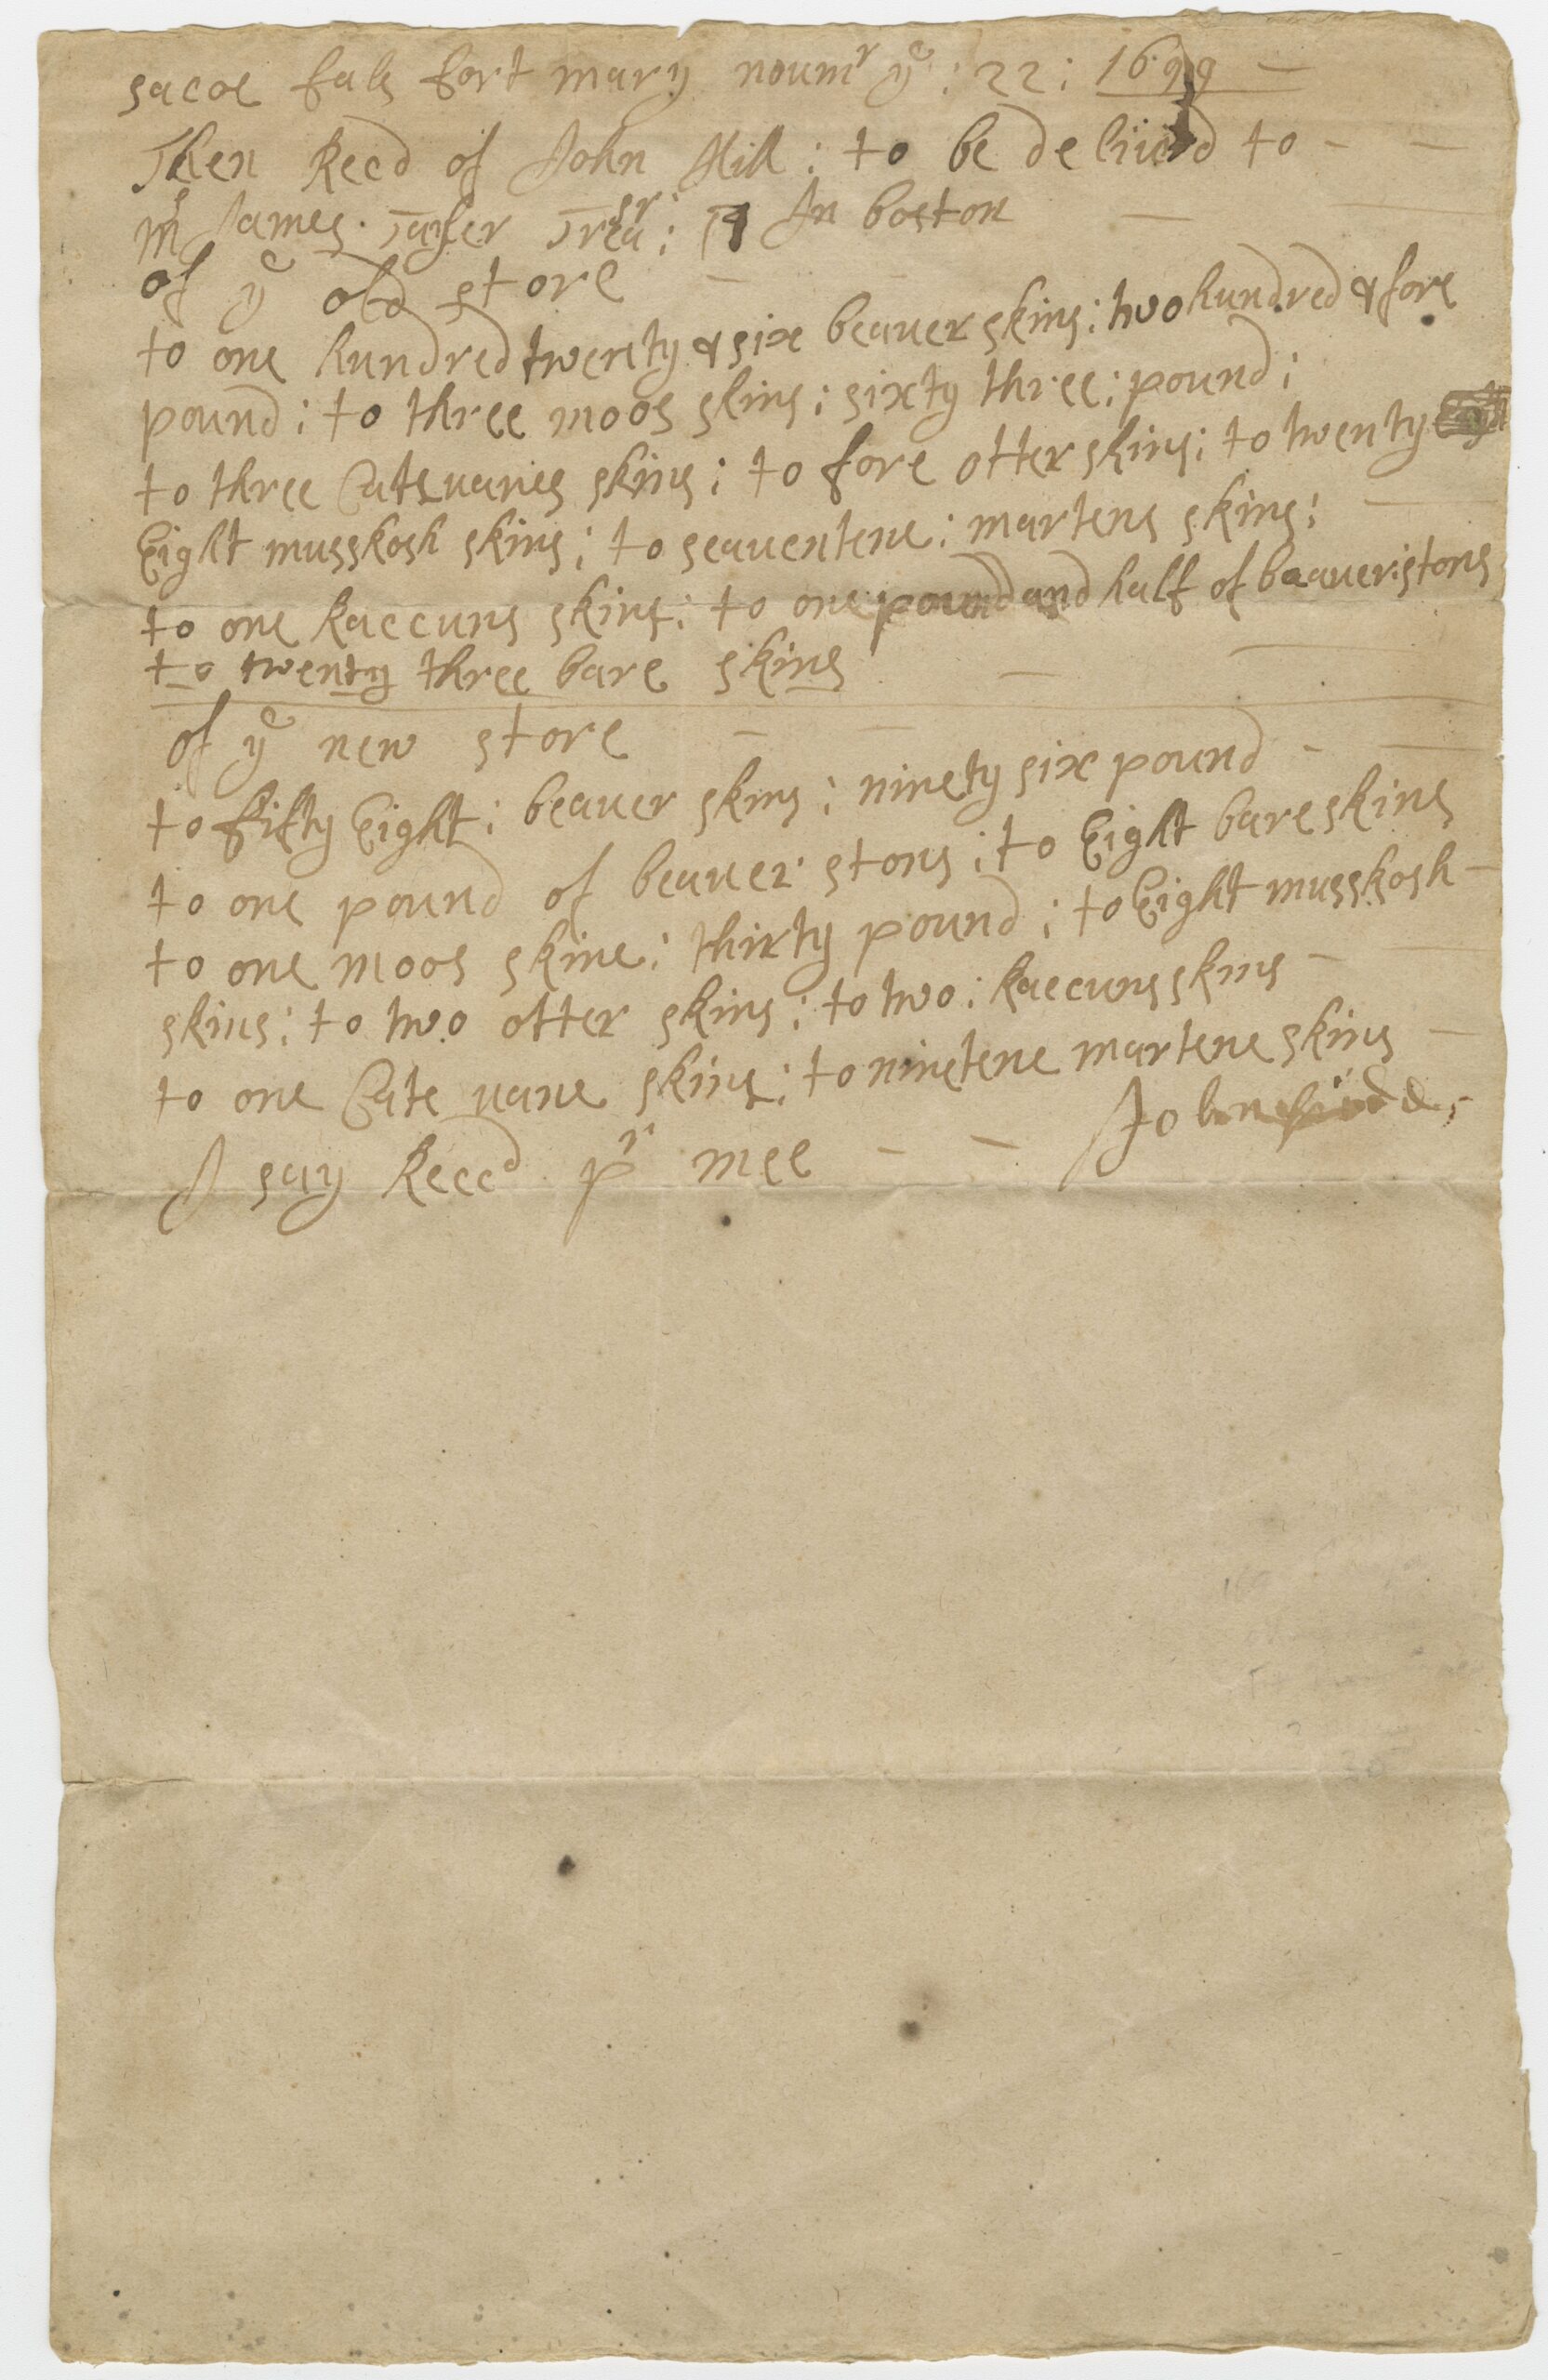 sacoe fals fort mary noumr ye : 22 : 1699
Then Recd of John Hill : to be deliuerd to
mr James Tayler Treasr : In boston
of ye old store
to one hundred twenty & six beauer skins : two hundred & fore
pound : to three moos skins : sixty three : pound :
to three Catsuanes skins : to fore otter skins : to twenty
Eight musskosh skins : to seauentene : martens skins :
to one Raccuns skins : to one pound and half of beauer stons
to twenty three bare skins
of ye new store
to fifty Eight : beauer skins : ninety six pound
to one pound of beauer stons : to Eight bare skins
to one moos skine : thirty pound : to Eight musskosh
skins : to two otter skins : to two : Raccuns skins
to one Cate uane skins : to ninetene martene skins
I say Reced pr mee John